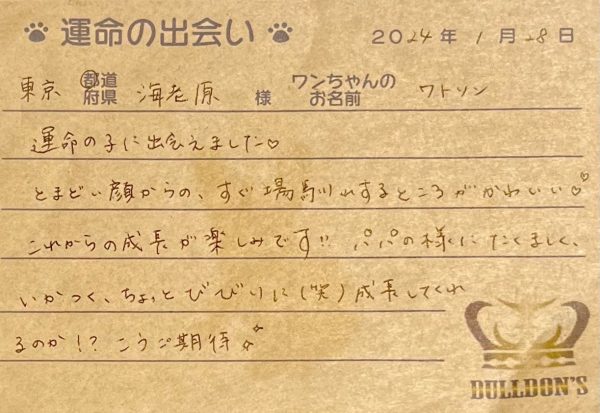 運命の出会い 2024年1月28日
東京 都道府県 海老原 様 ワンちゃんのお名前 ワトソン
運命の子に出会えました♡
とまどい顔からの、すぐ場馴れするところがかわいい♡
これからの成長が楽しみです!! パパの様にたくましく、
いかつく、ちょっとびびりに(笑)成長してくれ
るのか!? こうご期待
BULLDON'S